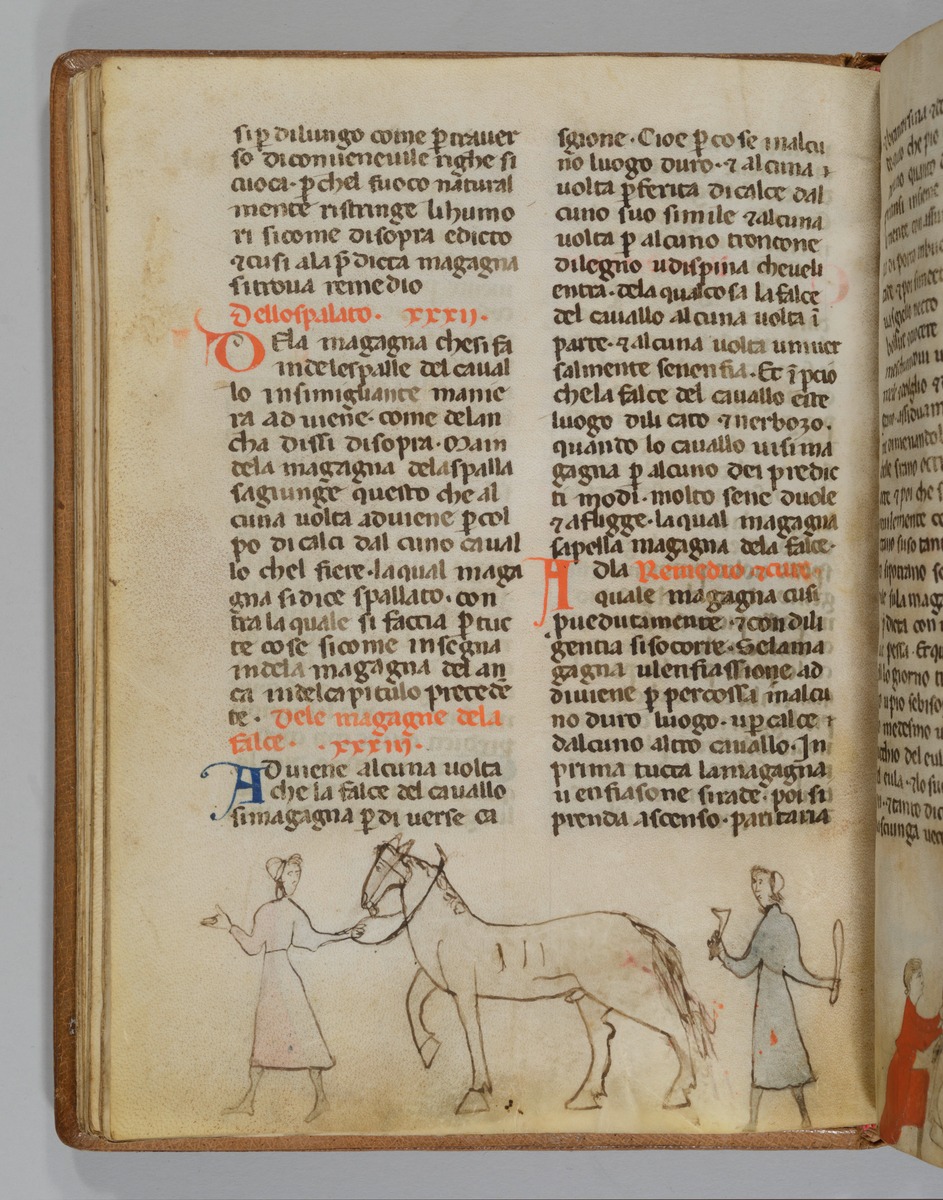 si ꝑ dilungo come ꝑ trauer
so diconueneuile righe si
cuoca· ꝑ chel fuoco nãtural
mente ristringe lihumo
ri sicome disopra edicto
⁊cusi ala p̃ dicta magagna
sitroua remedio
Dellospalato· xxxij·
DEla magagna chesi fa
indelespalle del caual
lo insimigliante manie
ra ad uiene· come delan
cha dissi disopra· Main
dela magagna delaspalla
sagiunge questo che al
cuna uolta aduiene ꝑ col
po di calci dal cuno caual
lo chel fiere· laqual maga
gna sidice spallato· con
tra la quale si faccia ꝑ tuc
te cose sicome insegna
indela magagna del an
ca indelcapitulo precedẽ
te· Dele magagne dela
falce· ·xxxiij·
AD uiene alcuna uolta
che la falce del cauallo
simagagna ꝑ di uerse ca
sgione· Cioe ꝑ co se inalcu
no luogo duro· ⁊ al cuna
uolta ꝑ ferita di calce dal
cuno suo simile ⁊alcuna
uolta ꝑ alcuno troncone
dilegno udispina cheueli
entra· dela qual cosa la falce
del cauallo al cuna uolta ĩ
parte· ⁊ alcuna uolta uniuer
salmente senenfia· Et ĩ pcio
chela falce del cauallo este
luogo dilicato ⁊ nerbozo·
quando lo cauallo uisi ma
gagna ꝑ alcuno dei predic
ti modi· molto sene duole
⁊ afligge· laqual magagna
sapella magagna dela falce·
Remedio ⁊cure·
ADla quale magagna cusi
puedutamente ⁊ con dili
gentia sisocorre· Selama
gagna ulenfiassione ad
diuiene ꝑ percossa inalcu
no duro luogo· u ꝑ calce
dalcuno altro cauallo· In
prima tucta lamagagna
u enfiasone sirade· poi si
prenda ascenso· paritaria